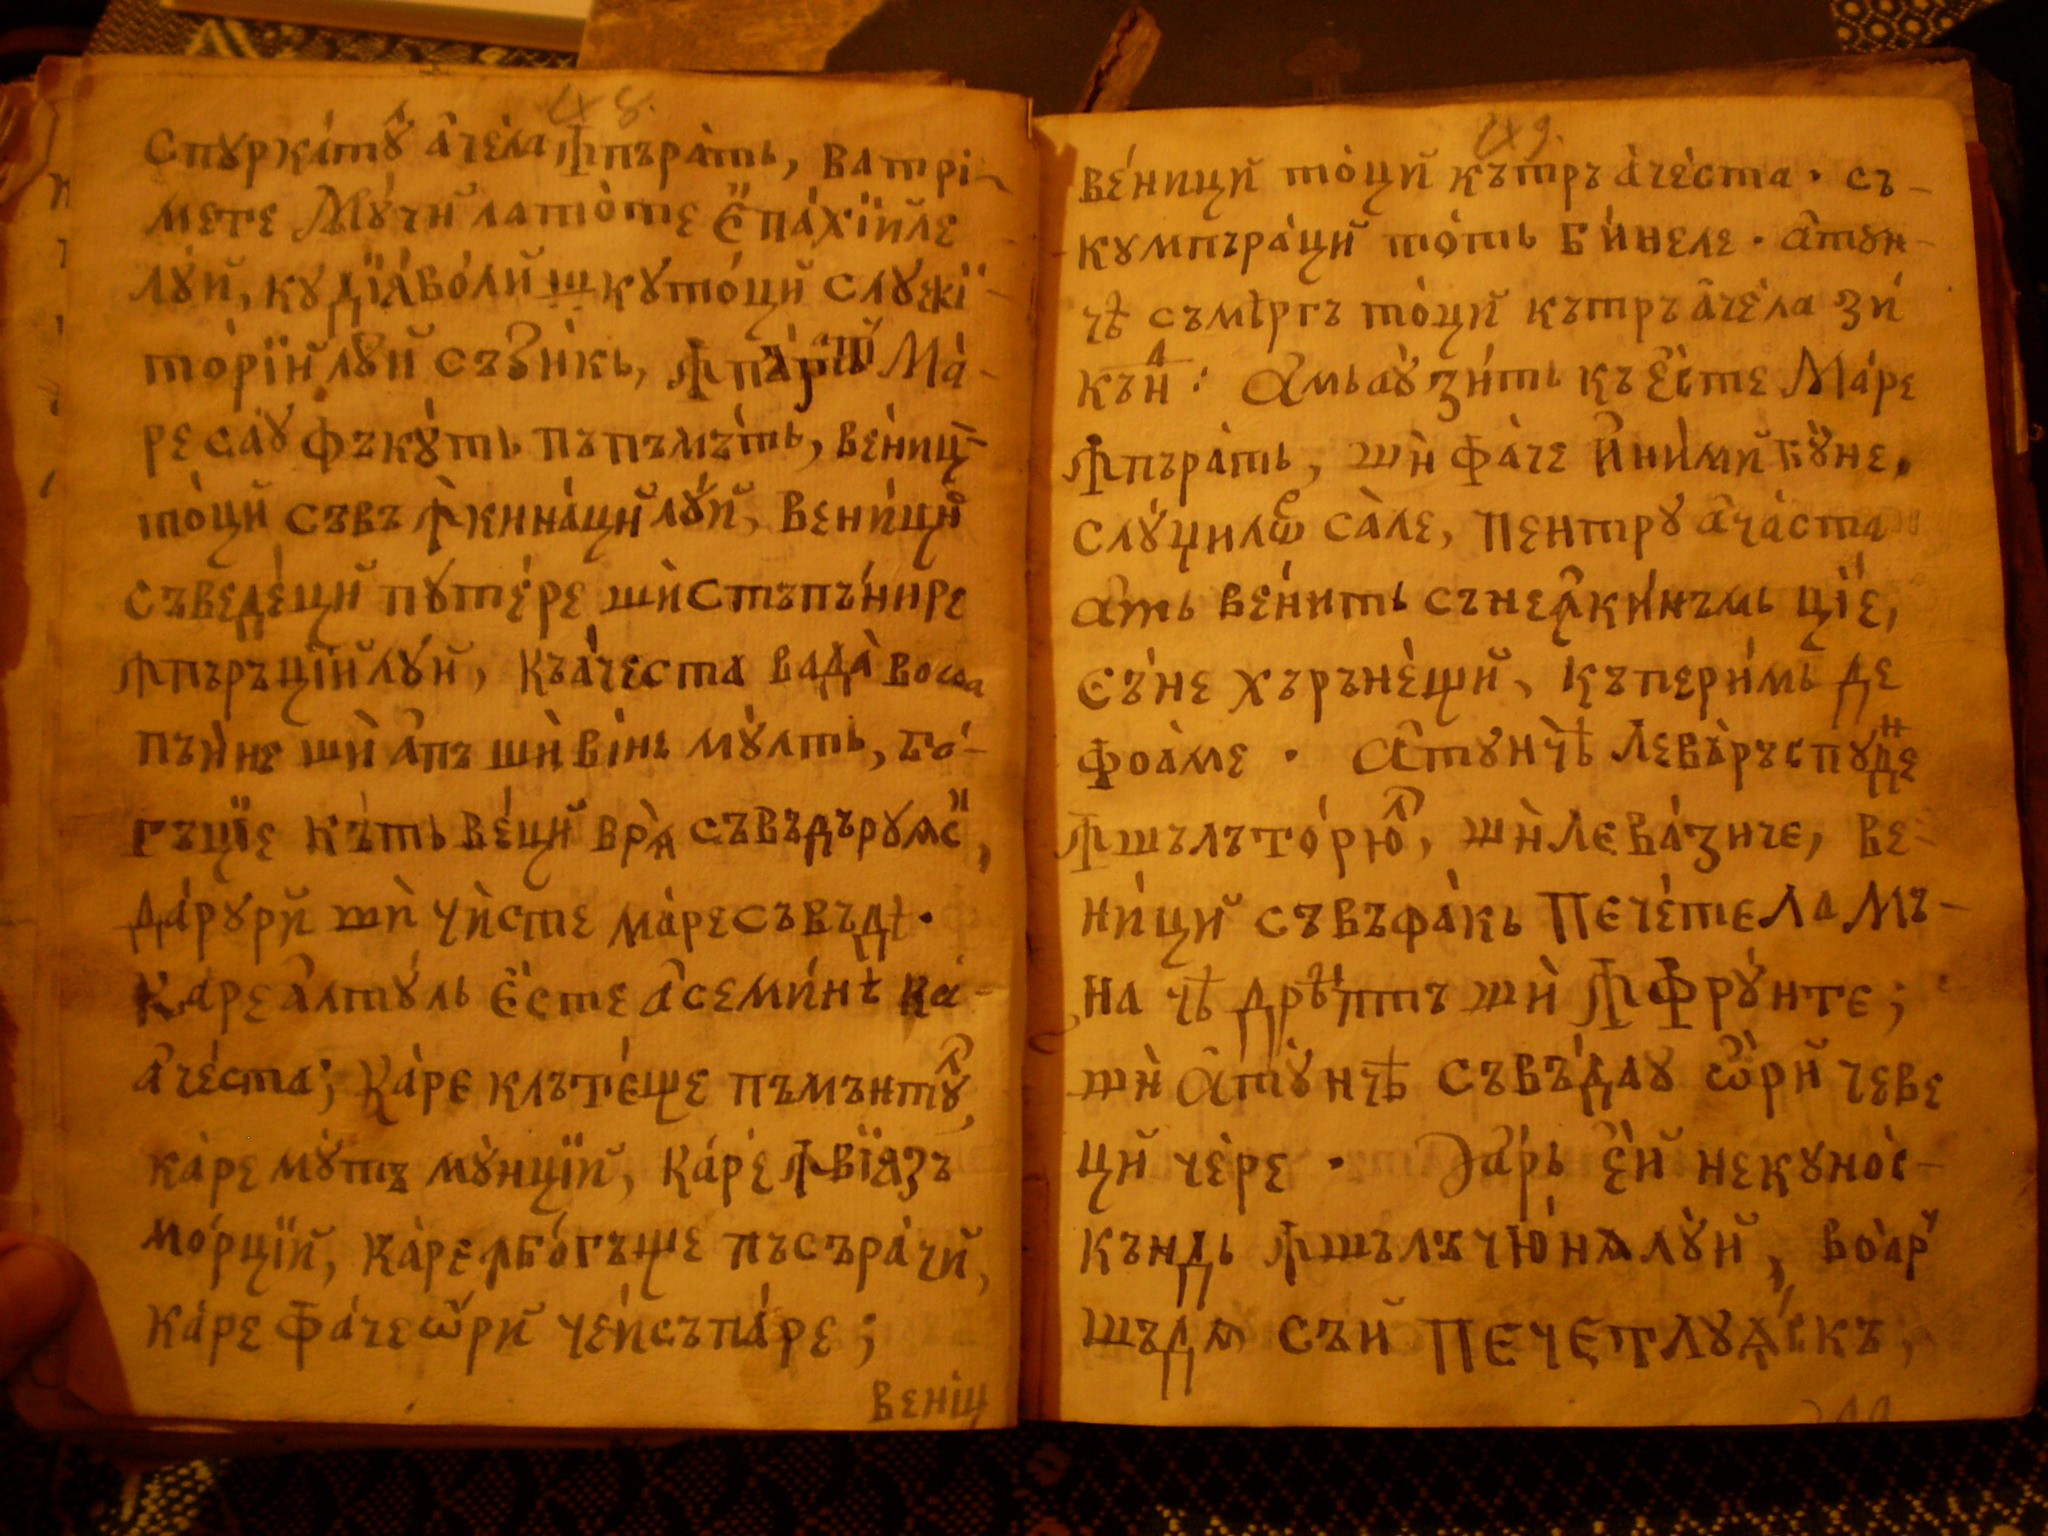 спурка́тꙋл а̑че́ла ꙟпъра́ть, ва трі-
мете Му́чй лато́те Е҆па́хїйле
лу́й, ку дїа́волй ш куто́цй служї-
то́рїй лꙋй съзи́къ, Ма́-
ре са́ꙋ фъку́ть пъпъмъ́ть, ве́ниц
то́цй съвъ ꙟкина́цй лу́й, вени́цй
съведе́цй путе́ре шѝ стъпъ́нире
ꙟпъръцїй лу́й, къа́честа вада̀ воѡа
пъи́не шѝ а҆пъ шѝ ві́нь му́лть, бо-
гъцїе къ́ть ве́цй врѣ̀ съвъдъруѧс,
да́рурй шѝ чи́сте ма́ре съвъдѣ.
Каре а҆лту́ль е҆́сте а҆семи́нѣ ка-
а҆че́ста; Ка́ре клъте́ще пъмънтꙋл,
ка́ре му́тъ му́нцїй, Ка́ре ꙟвїѧзъ
мо́рцїй, ка́ре ꙟбо́гъще пъсъра́чй,
ка́ре фа́че ѡ҆́рй че́йсъпа́ре;
веніц
ве́ницй то́цй кътръ а҆че́ста. съ-
кумпъра́цй то́ть би́неле. а҆тун-
чѣ съмѣргъ то́цй кътръ а҆че́ла зи-
къ́нд: Амь аузи́ть къ е҆́сте Ма́ре
ꙟпъра́ть, шѝ фа́че и҆ними́й бу́не,
слу́цилѡр са́ле, пентру а҆ча́ста
а҆ть ве́нить съне ꙟки́нъмь цїе,
съ́не хъръне́щй, къ пери́мь де
фоа́ме. А҆тунчѣ ле ва̀ ръспунде
ꙟшълъто́рюл, шѝ ле ва́ зиче, ве-
ни́цй съвъфа́къ Пече́те ла Мъ-
на чѣ дрѣптъ шѝ ꙟ Фру́нте;
шѝ А҆ту́нчѣ съвъ́дау ѡ҆́рй чеве
цй че́ре. Іа́рь е҆́й некуно́с-
къндь ꙟшълъчю́нѧ лу́й, воа̀р
шъдѧ съ́й Печетлуѧ́скъ,